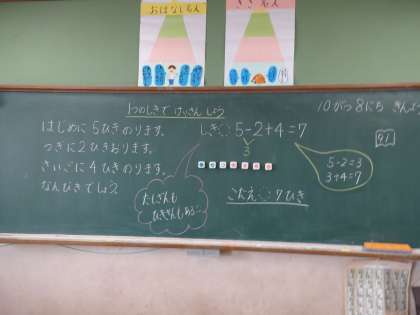 おはなし名人
きき名人
1つのしきで けいさんしよう
10がつ8にち きんよう
はじめに 5ひきのります。
つぎに 2ひきおります。
さいごに 4ひきのります。
なんびきでしょう
しき 5-2+4=7
3
5-2=3
3+4=7
たしざんも
ひきざんもある…
こたえ 7ひき